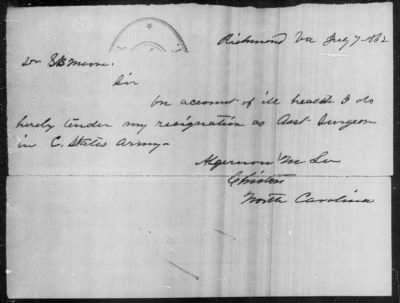 Richmond Va July 7. 1862
Dr S P Moore.
Sir
On account of ill health I do
hereby tender my resignation as Asst Surgeon
in C. States Army.
Algernon
North Carolina